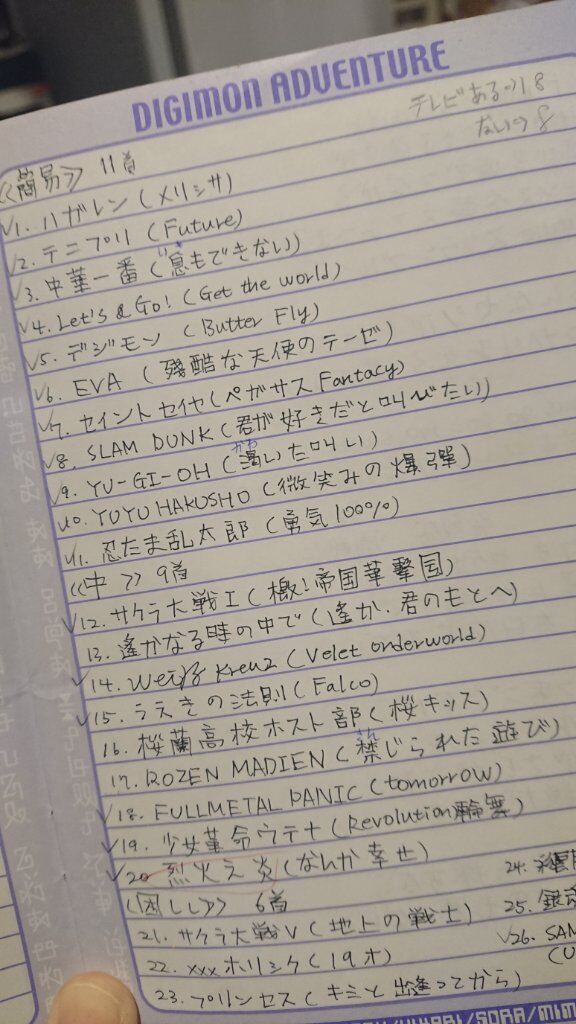 DIGIMON ADVENTURE
テレビある→18
ない→8
≪簡易≫ 11首
✓1. ハガレン (メリッサ)
✓2. テニプリ (Future)
✓3. 中華一番 (息もできない)
✓4. Let's & Go! (Get the world)
✓5. デジモン (Butter Fly)
✓6. EVA (残酷な天使のテーゼ)
✓7. セイントセイヤ (ペガサス Fantacy)
✓8. SLAM DUNK (君が好きだと叫びたい)
✓9. YU-GI-OH (渇いた叫い)
✓10. YUYU HAKUSHO (微笑みの爆彈)
✓11. 忍たま乱太郎 (勇気100%)
≪中≫ 9首
✓12. サクラ大戦I (檄!帝国華撃国)
13. 遙かなる時の中で (遙か、君のもとへ)
✓14. Weiβ Kreuz (Velet onderworld)
✓15. うえきの法則 (Falco)
16. 桜蘭高校ホスト部 (桜キッス)
17. ROZEN MADIEN (禁じられた遊び)
✓18. FULLMETAL PANIC (tomorrow)
✓19. 少女革命ウテナ (Revolution 輪舞)
✓20 烈火え炎 (なんか幸せ)
6首
21. サクラ大戦V (地上の戦士)
22. xxxホリック (19才)
23. プリンセス (キミと出逢ってから)
24.
25. 銀
✓26. SAM
SORA/MIM